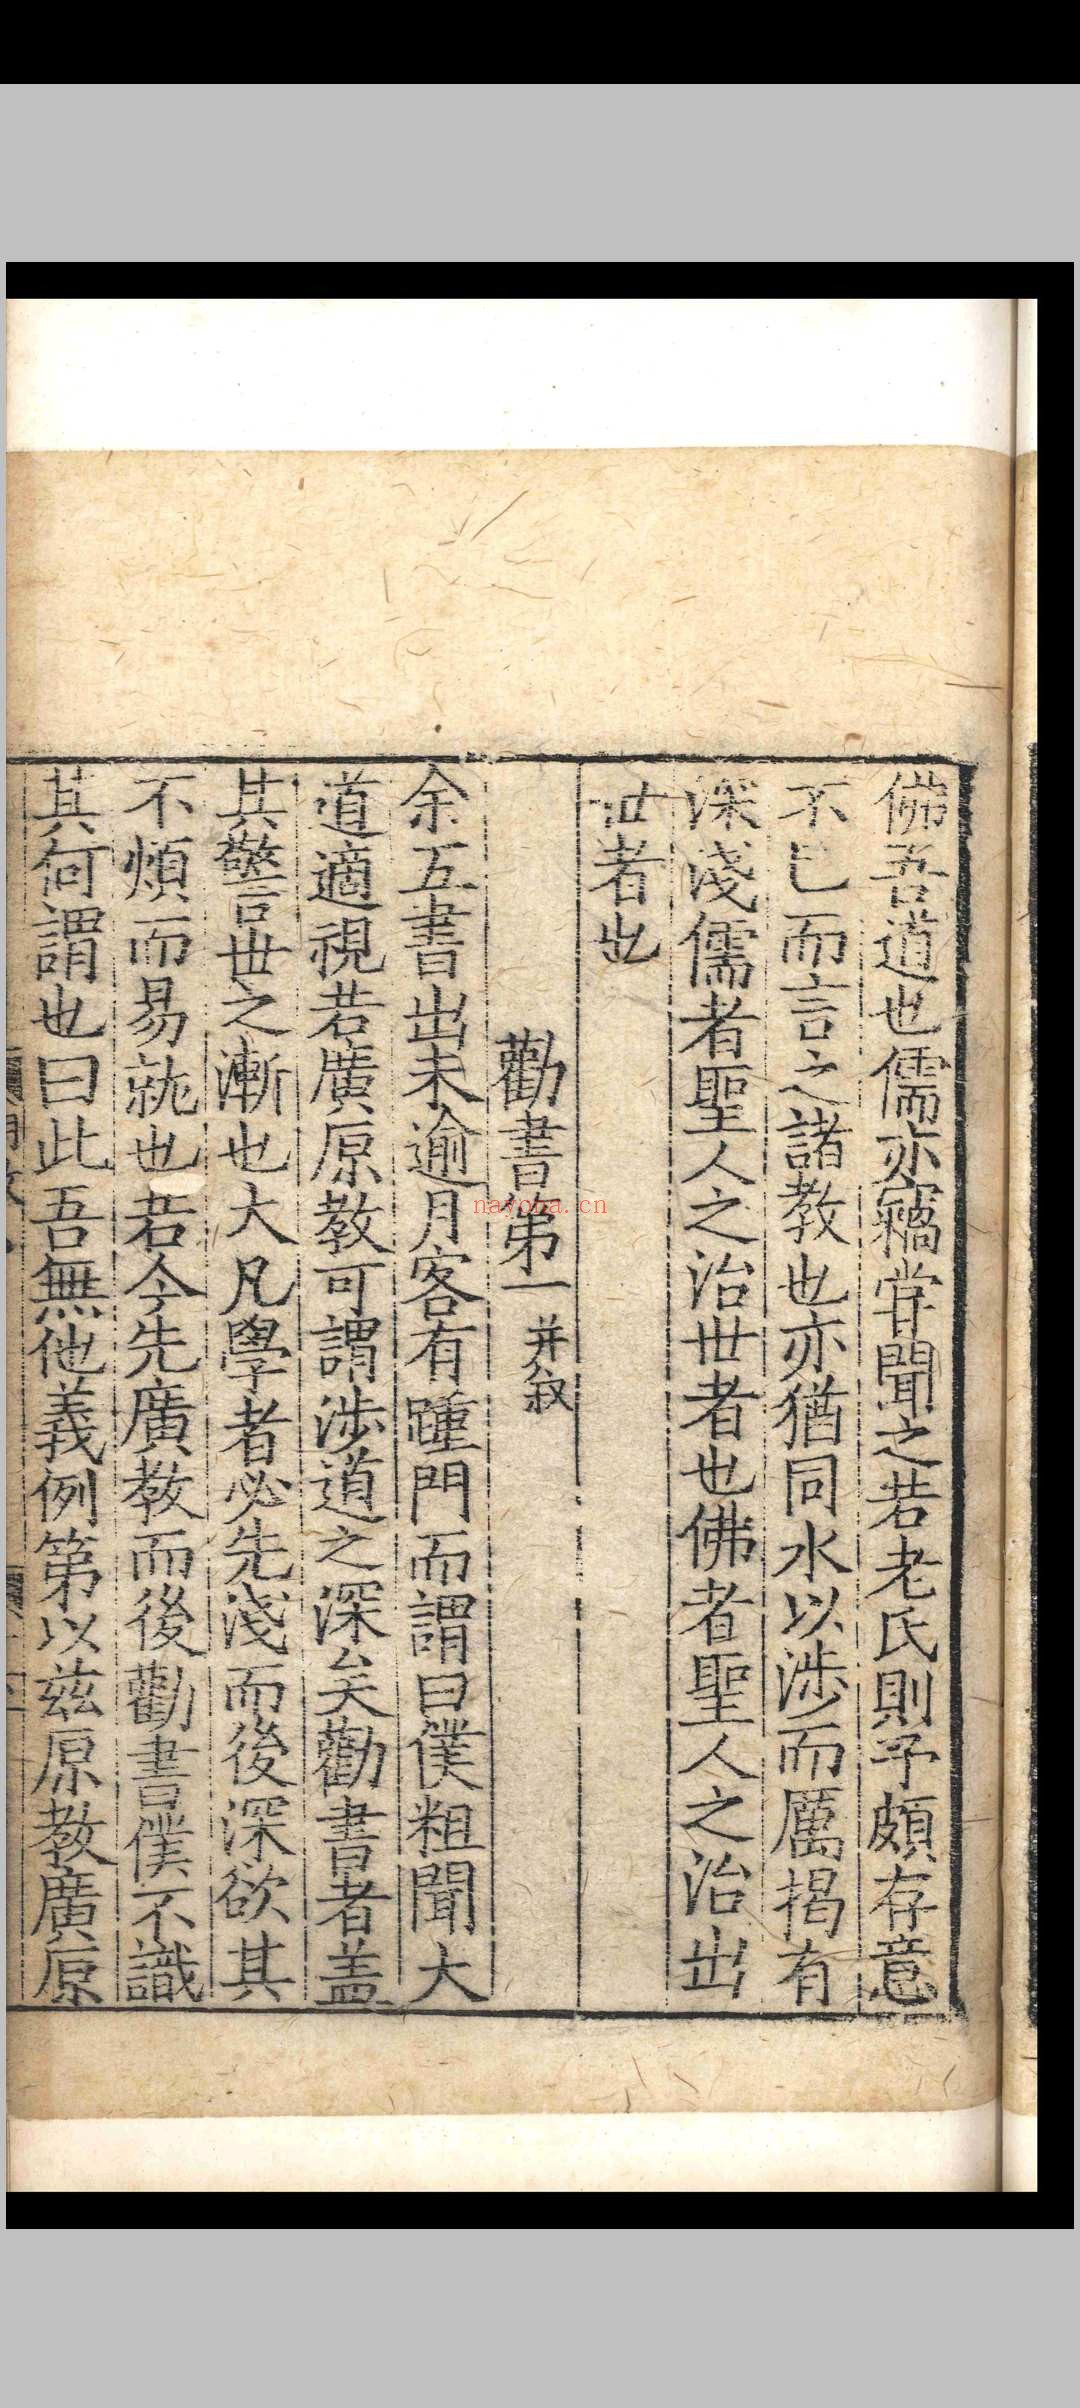 佛吾道也儒亦竊甞聞之若老氏則予頗存意
不已而言之諸教也亦猶同水以涉而厲揭有
深淺儒者聖人之治世者也佛者聖人之治出
世者也
勸書第一 并叙
余五書出未逾月客有踵門而謂曰僕粗聞大
道適視若廣原教可謂涉道之深矣勸書者盖
其警世之漸也大凡學者必先淺而後深欲其
不煩而易就也若今先廣教而後勸書僕不識
其何謂也曰此吾無他義例第以兹原教廣原
nayona.cn